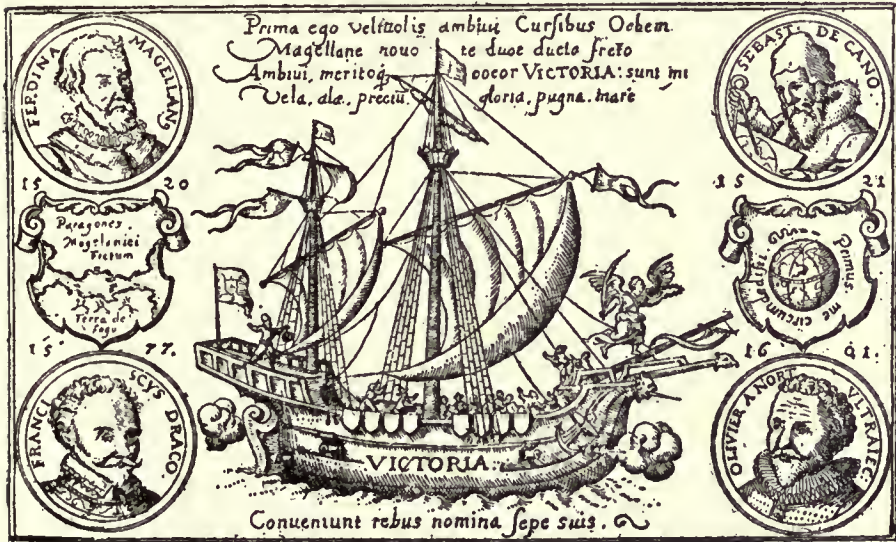 Prima ego veliuolis ambiui Curſibus Orbem.
Magellane nouo te duce ducta freto
Ambiui, meritoq̄ vocor VICTORIA: sunt mi
Vela, alæ. preciū, gloria, pugna. mare
FERDINA MAGELLANɢ
SEBASTI DE CANO.
15 20
15 21
Paragones.
Magelanici
Fretum
Terra de
fogo
Primus me circumdediſti
15 77.
16 01.
FRANCI SCVS DRACO.
OLIVIER A NORT VLTRAIEC.
VICTORIA:
Conueniunt rebus nomina ſepe suis.